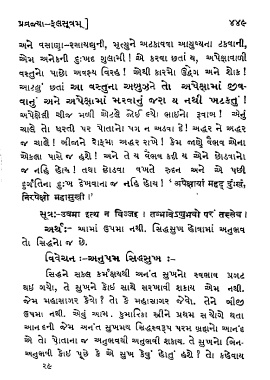 પ્રવ્રજ્યા-ફલસૂત્રમ્ ]
૪૪૯
અને વસાણા-રસાયણની, મૃત્યુને અટકાવવા આયુષ્યના ટકવાની,
એમ અનેકની દુઃખદ ગુલામી ! એ કરવા છતાં ય, અપેક્ષાવાળી
વસ્તુનો પાછો અવશ્ય વિરહ ! એથી કારમો ઉદ્વેગ અને શોક !
આટલું છતાં આ વસ્તુના અણુઅને તો અપેક્ષામાં જીવ-
વાનું અને અપેક્ષામાં મરવાનું જરા ય નથી ખટકતું !
અપેક્ષેલી ચીજ મળી એટલે જોઈ લ્યો ભાઈનો રૂવાબ ! એનું
ચાલે તો ધરતી પર પોતાનો પગ ન અડવા દે ! અદ્ધર ને અદ્ધર
જ ચાલે ! બીજાને રૈફમા અદ્ધર રાખે ! કેમ જાણે વૈભવ એના
એકલા પાસે જ હશે ! અને તે ય વૈભવ કદી ય એને છોડવાનો
જ નહિ હોય ! તથા છોડવા વખતે રુદન અને એ પછી
દુર્ગતિના દુઃખ દેખવાના જ નહિ હોય ! 'અપેક્ષાયાં મહદ્ દુઃખં,
નિરપેક્ષો મહાસુખી !'
સૂત્ર:-ઉવમા ઇત્થ ન વિજ્જઇ । તબ્ભાવેऽણુભવો પરં તસ્સેવ ।
અર્થ:- આમાં ઉપમા નથી. સિદ્ધસુખ હોવામાં અનુભવ
તો સિદ્ધનો જ છે.
વિવેચન :-અનુપમ સિદ્ધસુખ :-
સિદ્ધને સકલ કર્મક્ષયથી અનંત સુખનો સ્વભાવ પ્રગટ
થઈ ગયો, તે સુખને કોઈ સાથે સરખાવી શકાય એમ નથી.
જેમ મહાસાગર કેવો ? તો કે મહાસાગર જેવો. તેને બીજી
ઉપમા નથી. એવું આમ. કુમારિકા સ્ત્રીને પ્રથમ સંયોગે થતા
આનંદની જેમ અનંત સુખમય સિદ્ધસ્વરૂપ પરમ બ્રહ્મનો આનંદ
એ તો પોતાના જ અનુભવથી અનુભવી શકાય. તે સુખનો બિન-
અનુભવી કોઈ પૂછે કે એ સુખ કેવું હોતું હશે ? તો કહેવાય
૨૯